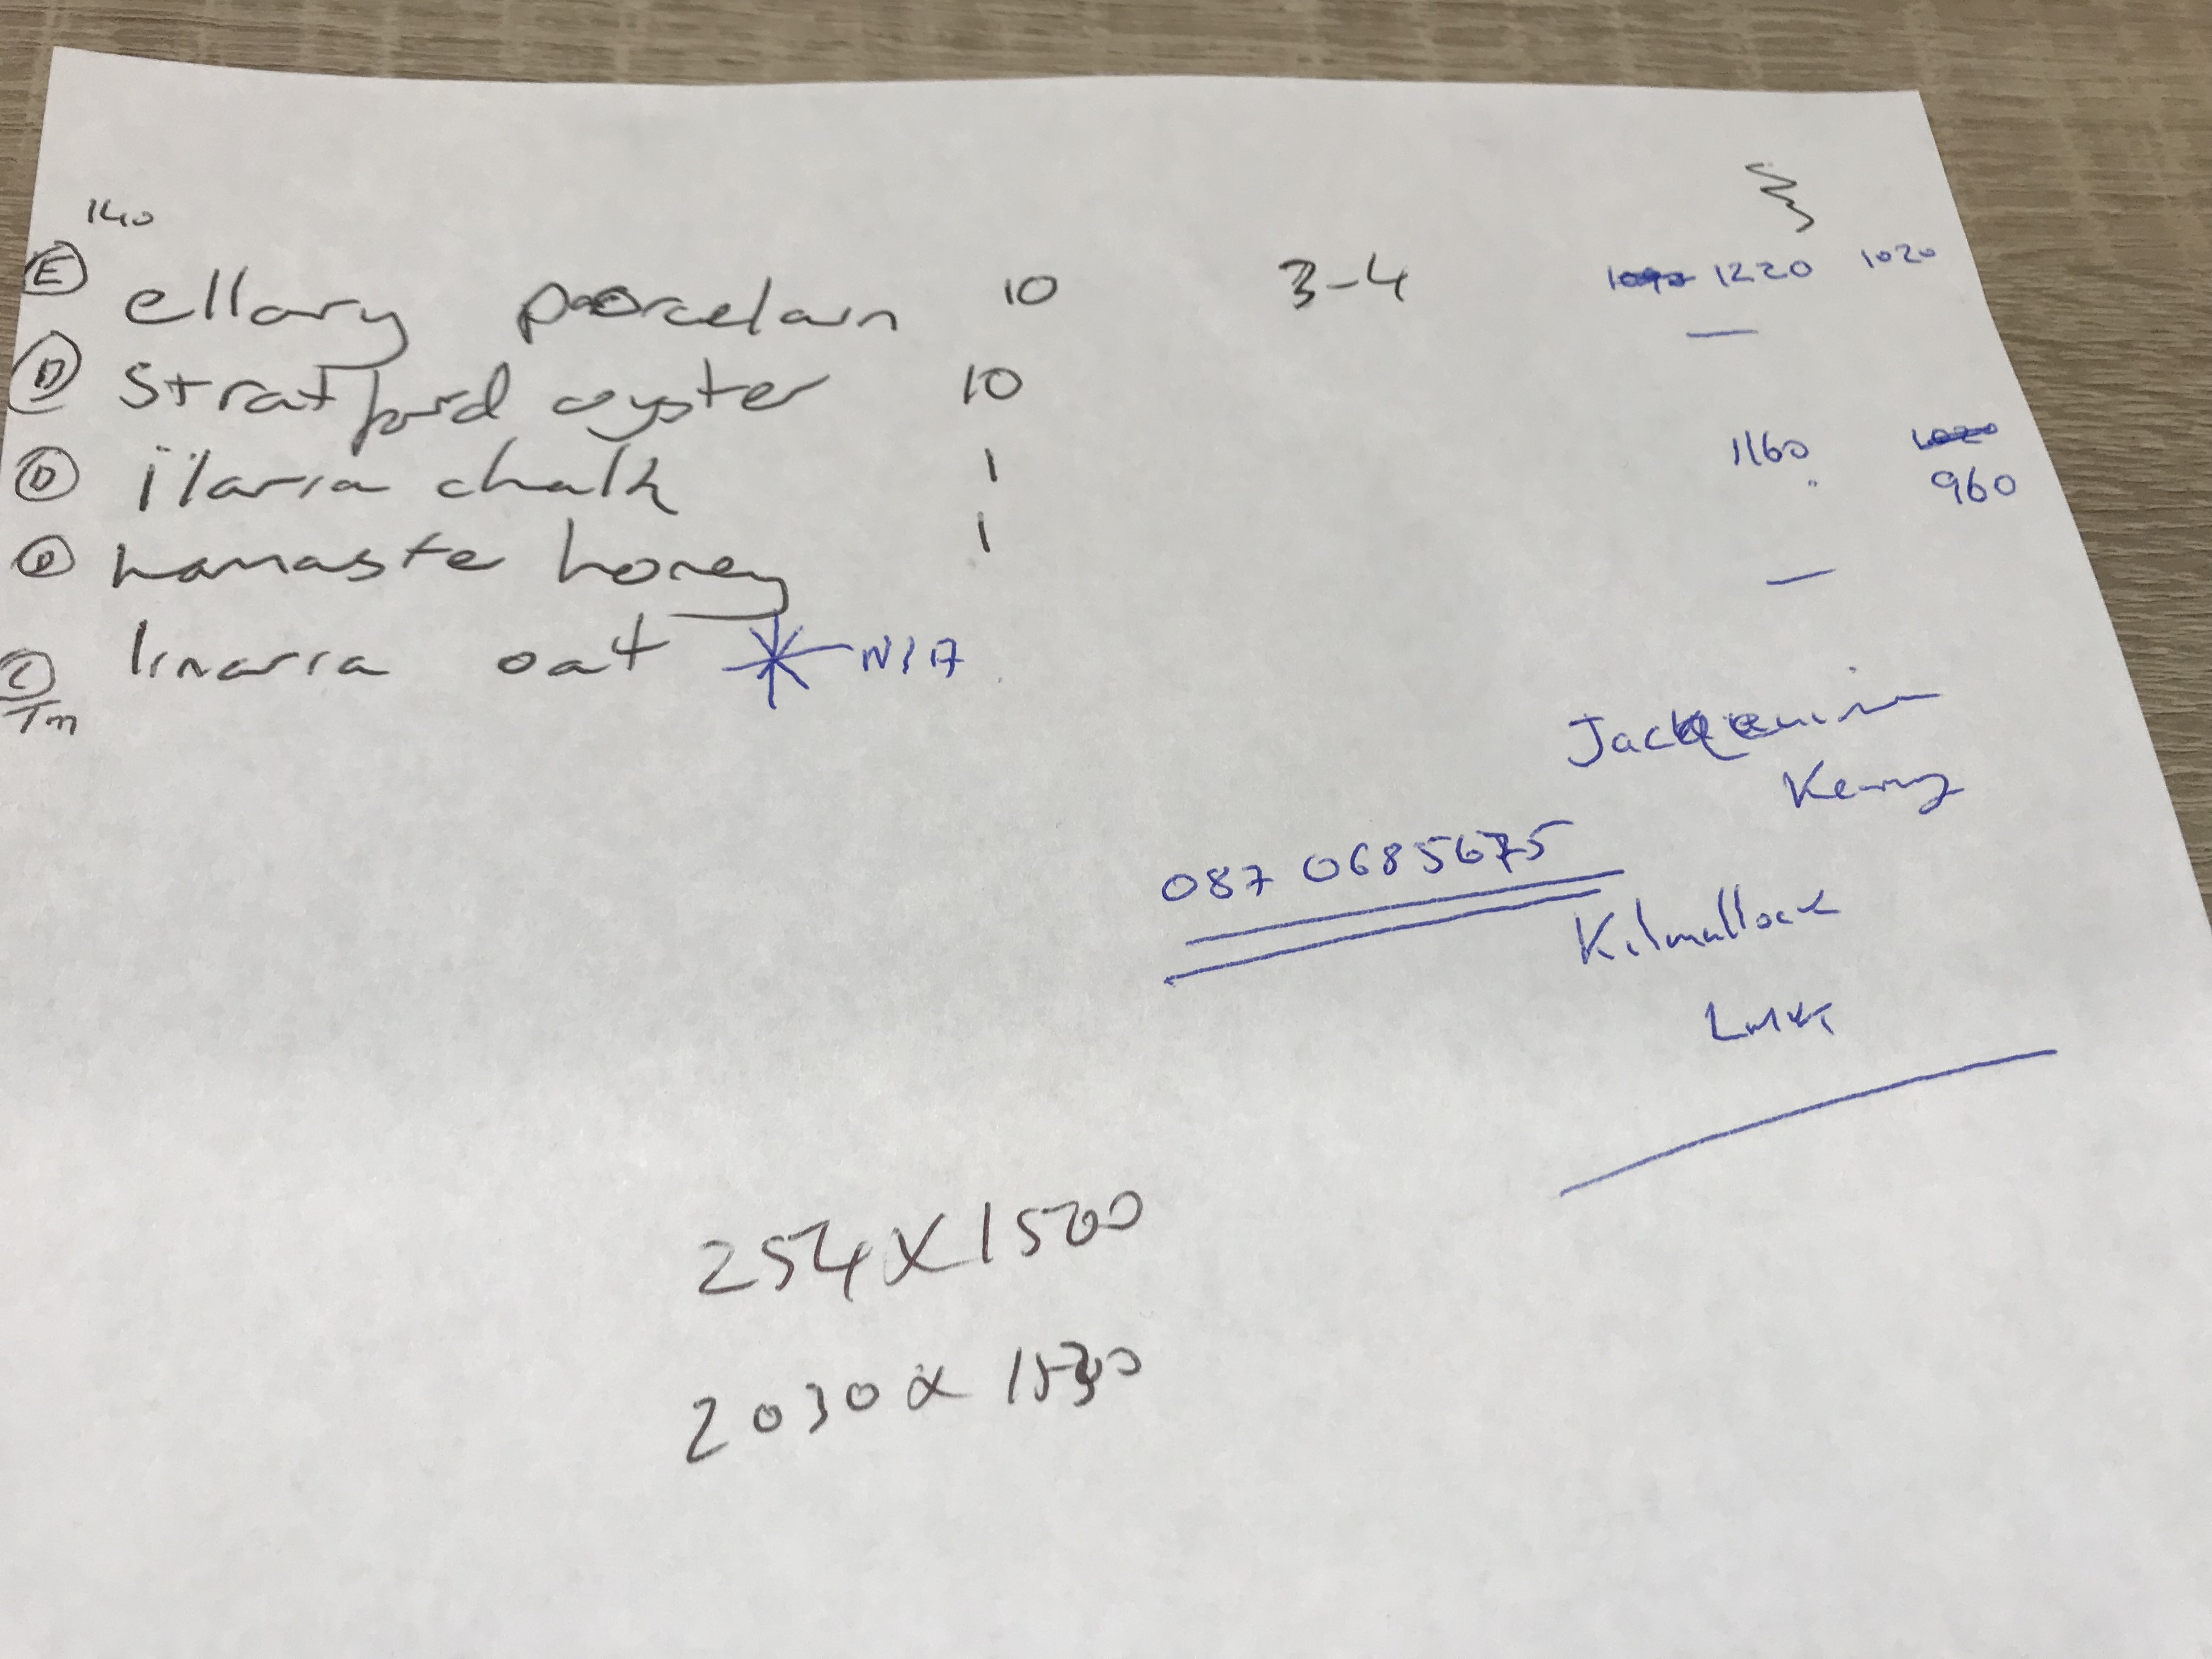 140
E ellary porcelain 10 3-4 1220 1020
D stratford oyster 10
D ilaria chalk 1 1160 1020
960
D namaste honey 1
linaria oat * N/A
C/Tm
Kenny
087 0685675
Kilmallock
LMK
254 X 1500
2030 x